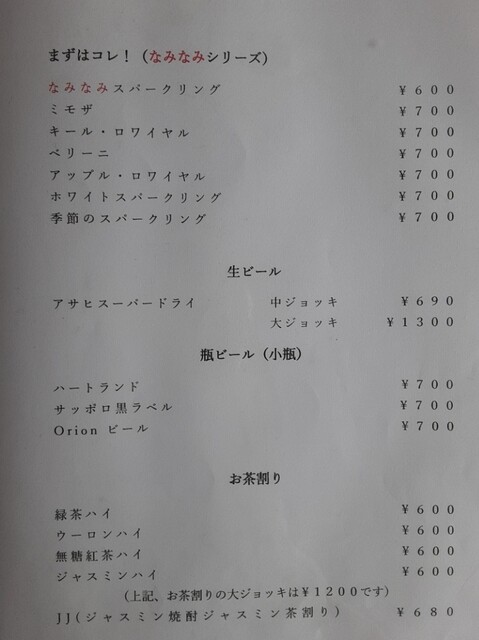 まずはコレ！（なみなみシリーズ）
なみなみスパークリング ￥６００
ミモザ ￥７００
キール・ロワイヤル ￥７００
ベリーニ ￥７００
アップル・ロワイヤル ￥７００
ホワイトスパークリング ￥７００
季節のスパークリング ￥７００
生ビール
アサヒスーパードライ 中ジョッキ ￥６９０
大ジョッキ ￥１３００
瓶ビール（小瓶）
ハートランド ￥７００
サッポロ黒ラベル ￥７００
Orion ビール ￥７００
お茶割り
緑茶ハイ ￥６００
ウーロンハイ ￥６００
無糖紅茶ハイ ￥６００
ジャスミンハイ ￥６００
（上記、お茶割りの大ジョッキは￥１２００です）
JJ(ジャスミン焼酎ジャスミン茶割り) ￥６８０